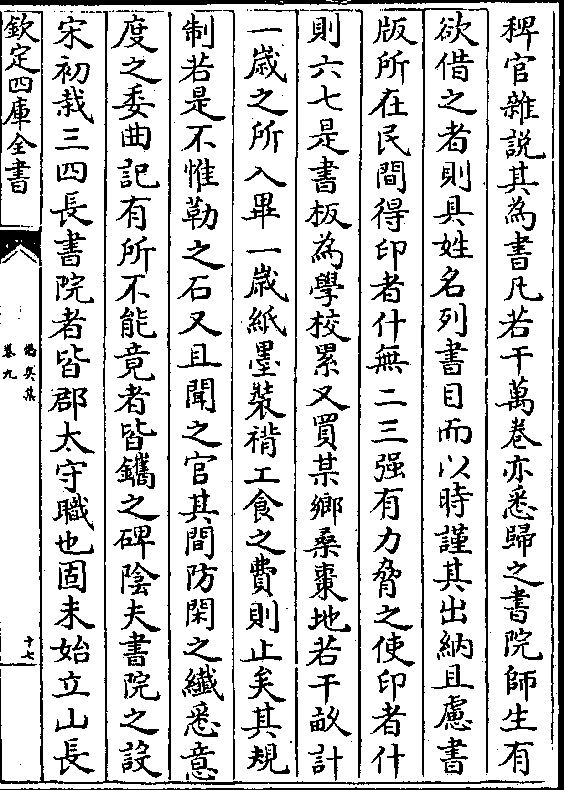 稗官雜説其為書凡若干萬卷亦悉歸之書院師生有
欲借之者則具姓名列書目而以時謹其出納且慮書
版所在民間得印者什無二三强有力脅之使印者什
則六七是書板為學校累又買某鄉桑棗地若干畝計
一歲之所入畢一歲紙墨裝褙工食之費則止矣其規
制若是不惟勒之石又且聞之官其間防閑之纎悉意
度之委曲記有所不能竟者皆鑴之碑隂夫書院之設
宋初裁三四長書院者皆郡太守職也固未始立山長
欽定四庫全書
卷九
十七